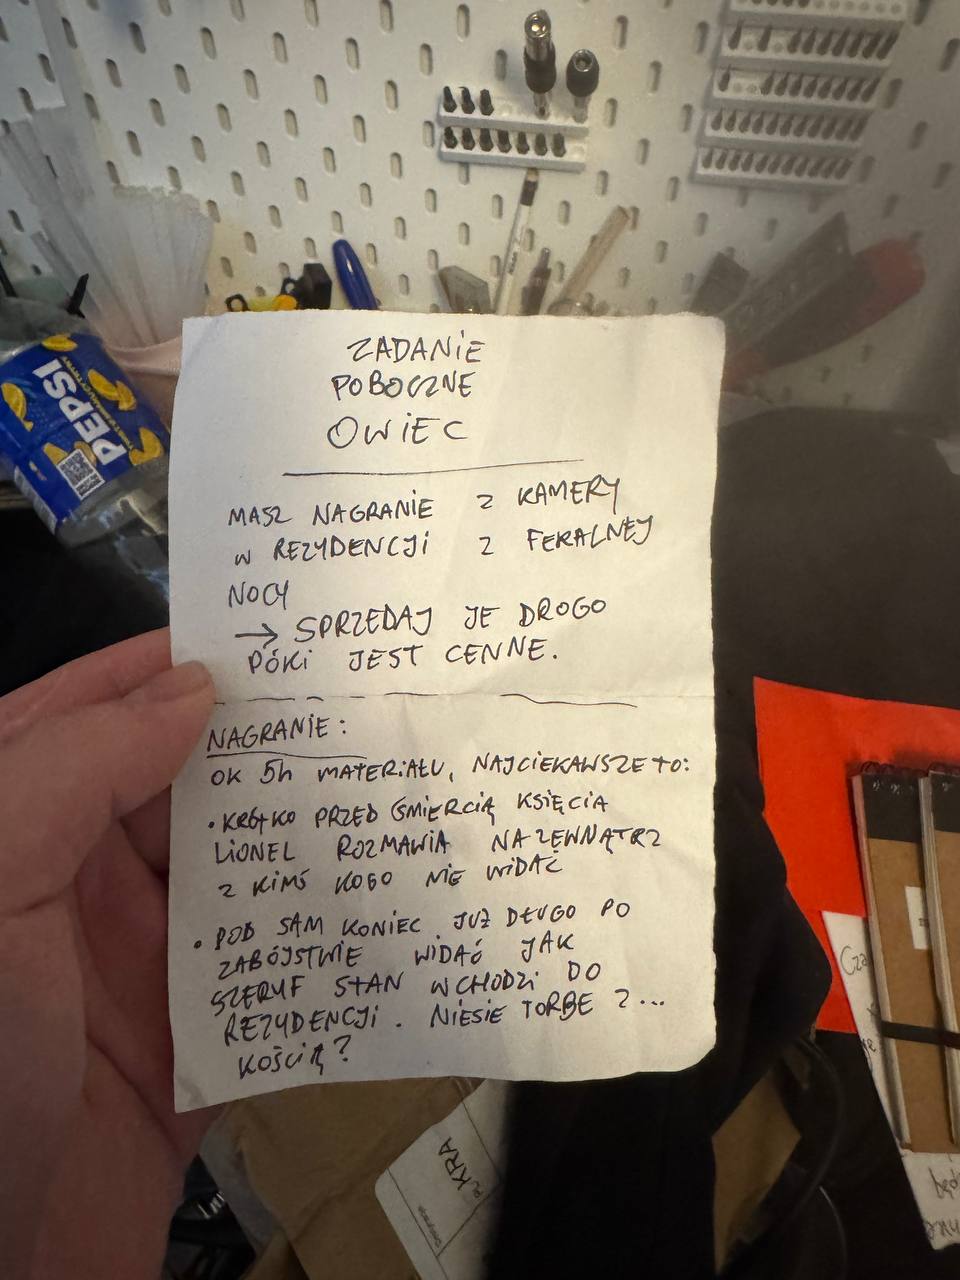 ZADANIE
POBOCZNE
OWIEC
MASZ NAGRANIE Z KAMERY
W REZYDENCJI Z FERALNEJ
NOCY
→ SPRZEDAJ JE DROGO
PÓKI JEST CENNE.
NAGRANIE:
OK 5h MATERIAŁU, NAJCIEKAWSZE TO:
• KRÓTKO PRZED ŚMIERCIĄ KSIĘCIA
LIONEL ROZMAWIA NA ZEWNĄTRZ
Z KIMŚ KOGO NIE WIDAĆ
• POD SAM KONIEC JUŻ DŁUGO PO
ZABÓJSTWIE WIDAĆ JAK
SZERYF STAN WCHODZI DO
REZYDENCJI. NIESIE TORBĘ Z...
KOŚCIĄ?
PEPSI
PL KRA